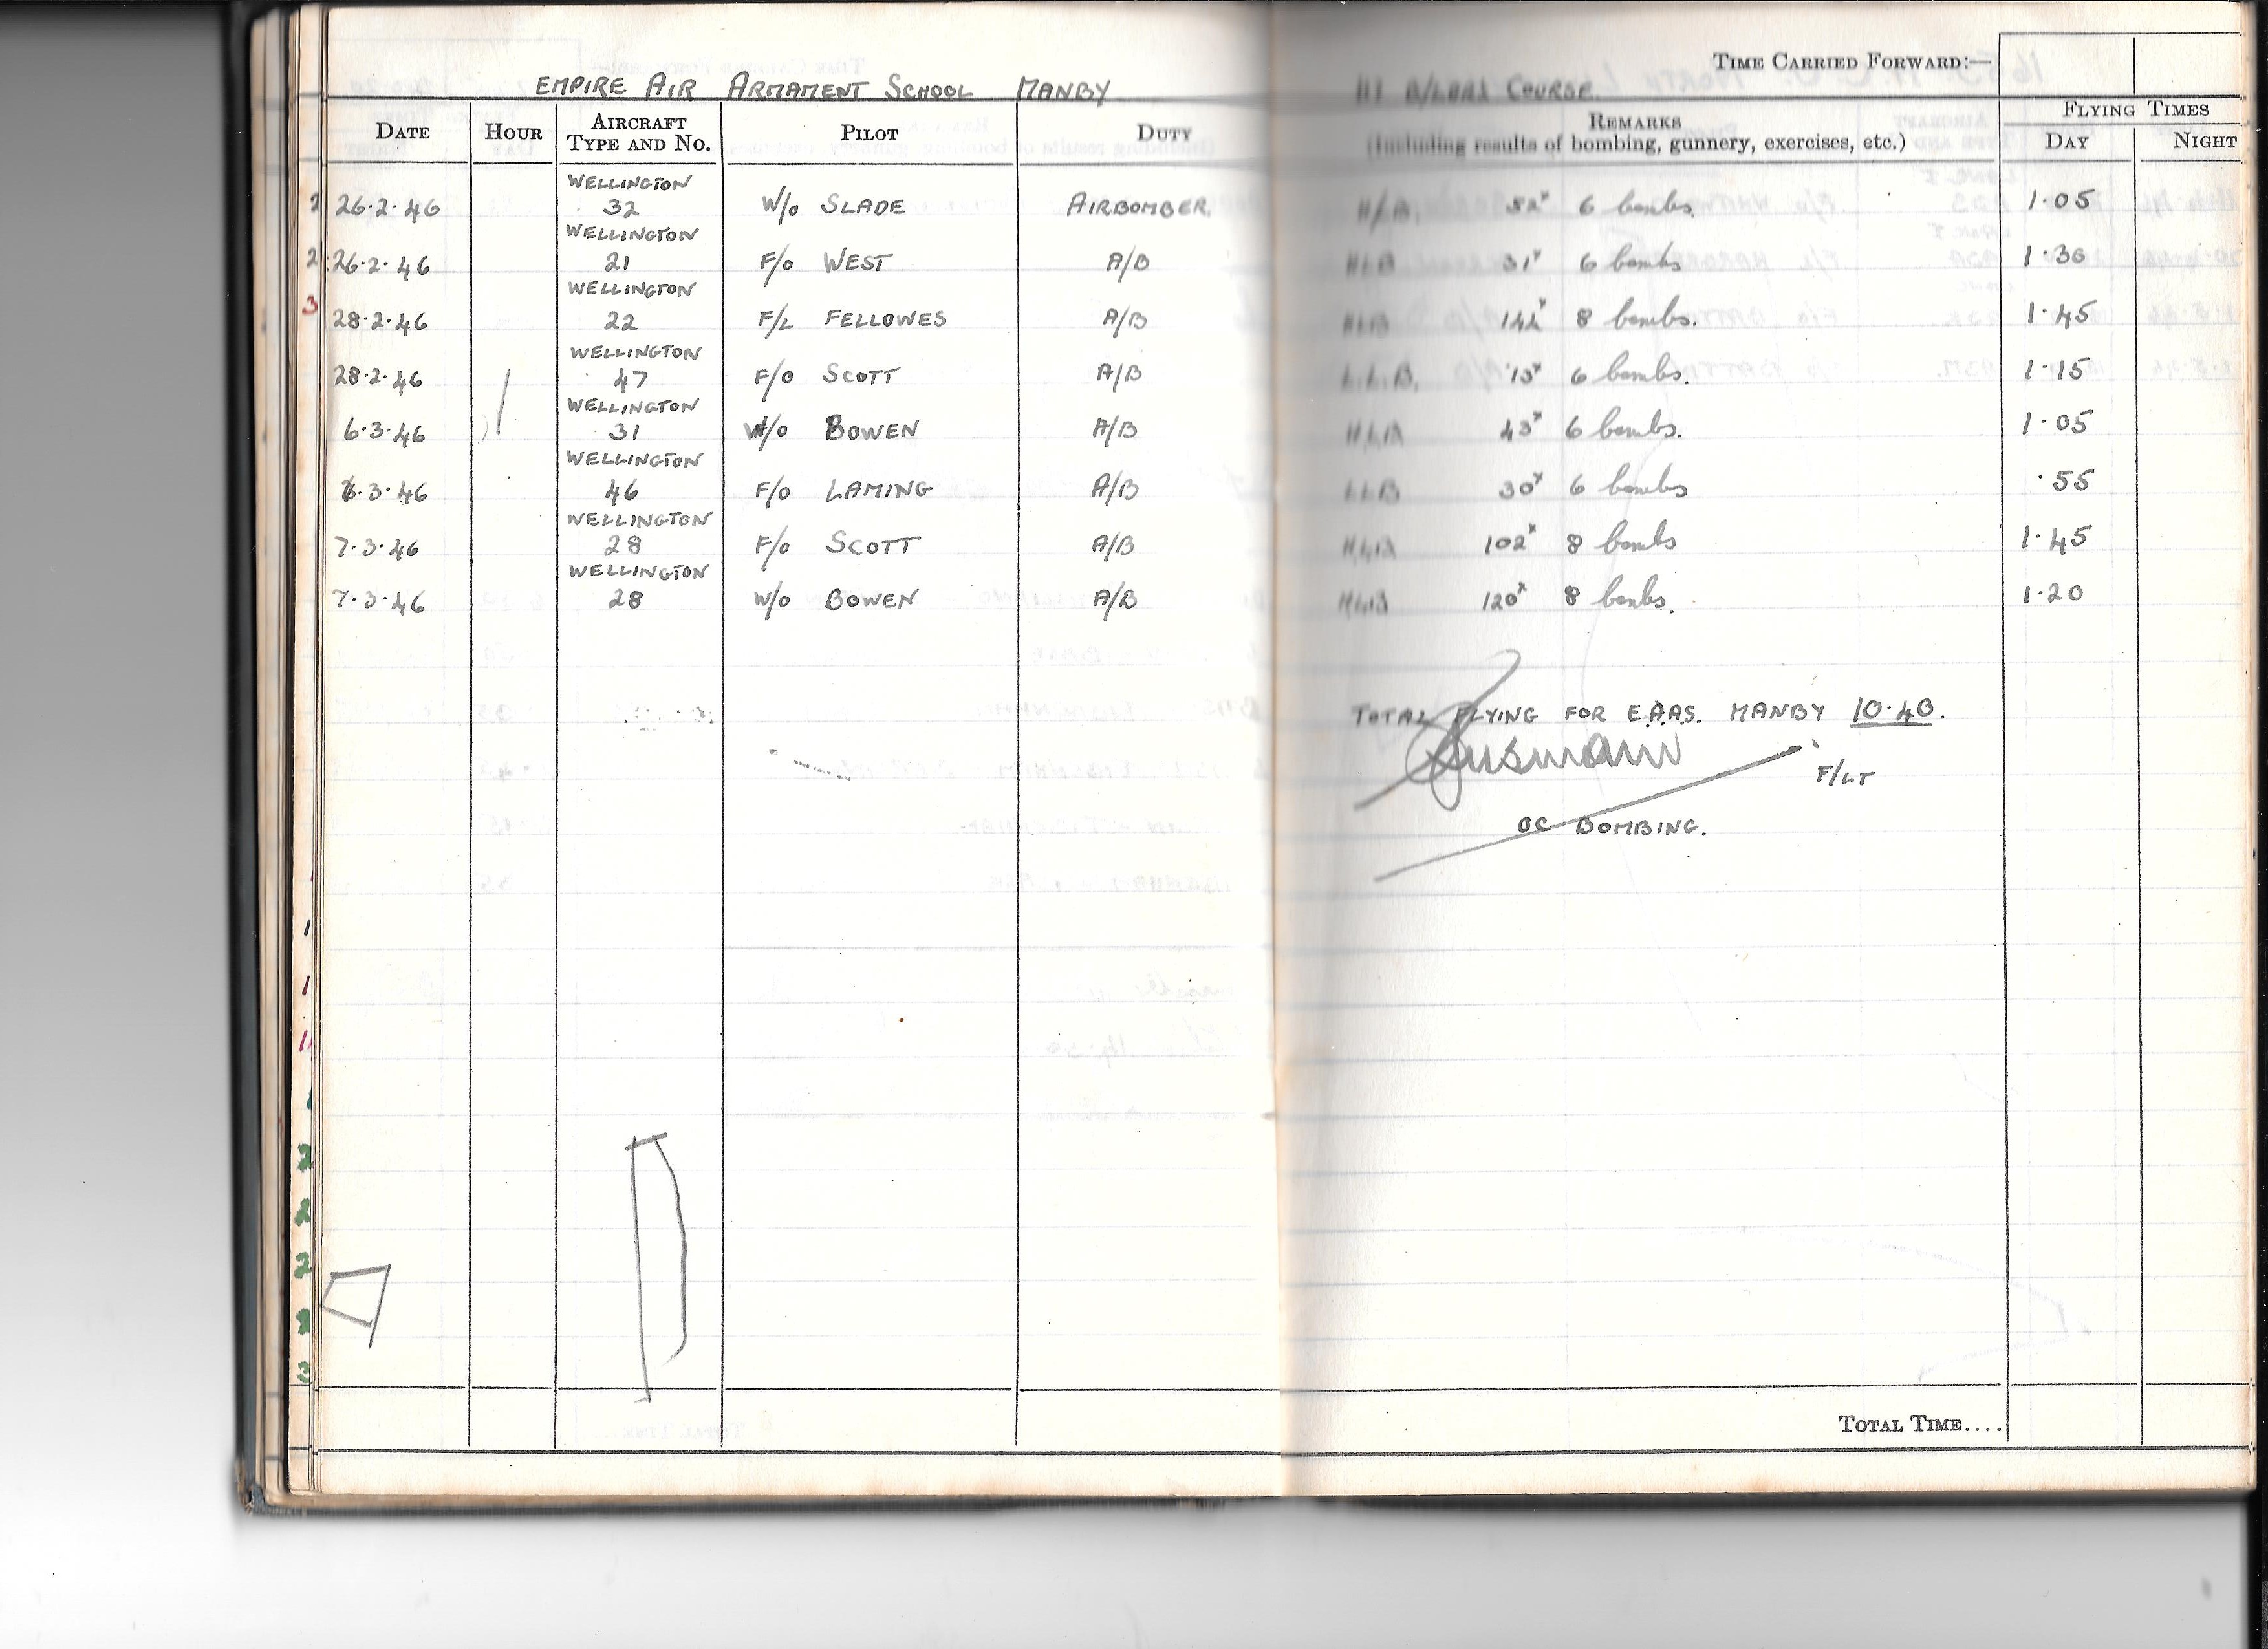 TIME CARRIED FORWARD:—
EMPIRE AIR ARMAMENT SCHOOL MANBY COURSE
DATE HOUR AIRCRAFT TYPE AND No. PILOT DUTY REMARKS (Including results of bombing, gunnery, exercises, etc.) FLYING TIMES DAY NIGHT
WELLINGTON
26.2.46 32 W/O SLADE AIRBOMBER. 6 bombs. 1.05
WELLINGTON
26.2.46 21 F/O WEST A/B HLB 31x 6 bombs 1.30
WELLINGTON
28.2.46 22 F/L FELLOWES A/B HLB 8 bombs. 1.45
WELLINGTON
28.2.46 47 F/O SCOTT A/B L.L.B. 6 bombs. 1.15
WELLINGTON
6.3.46 31 W/O BOWEN A/B HLB 43x 6 bombs. 1.05
WELLINGTON
46 F/O LAMING A/B LLB 30x 6 bombs .55
WELLINGTON
7.3.46 28 F/O SCOTT A/B HLB 102x 8 bombs 1.45
WELLINGTON
7.3.46 28 W/O BOWEN A/B HLB 120x 8 bombs. 1.20
TOTAL FLYING FOR E.A.A.S. MANBY 10.40.
F/LT
OC BOMBING.
TOTAL TIME....